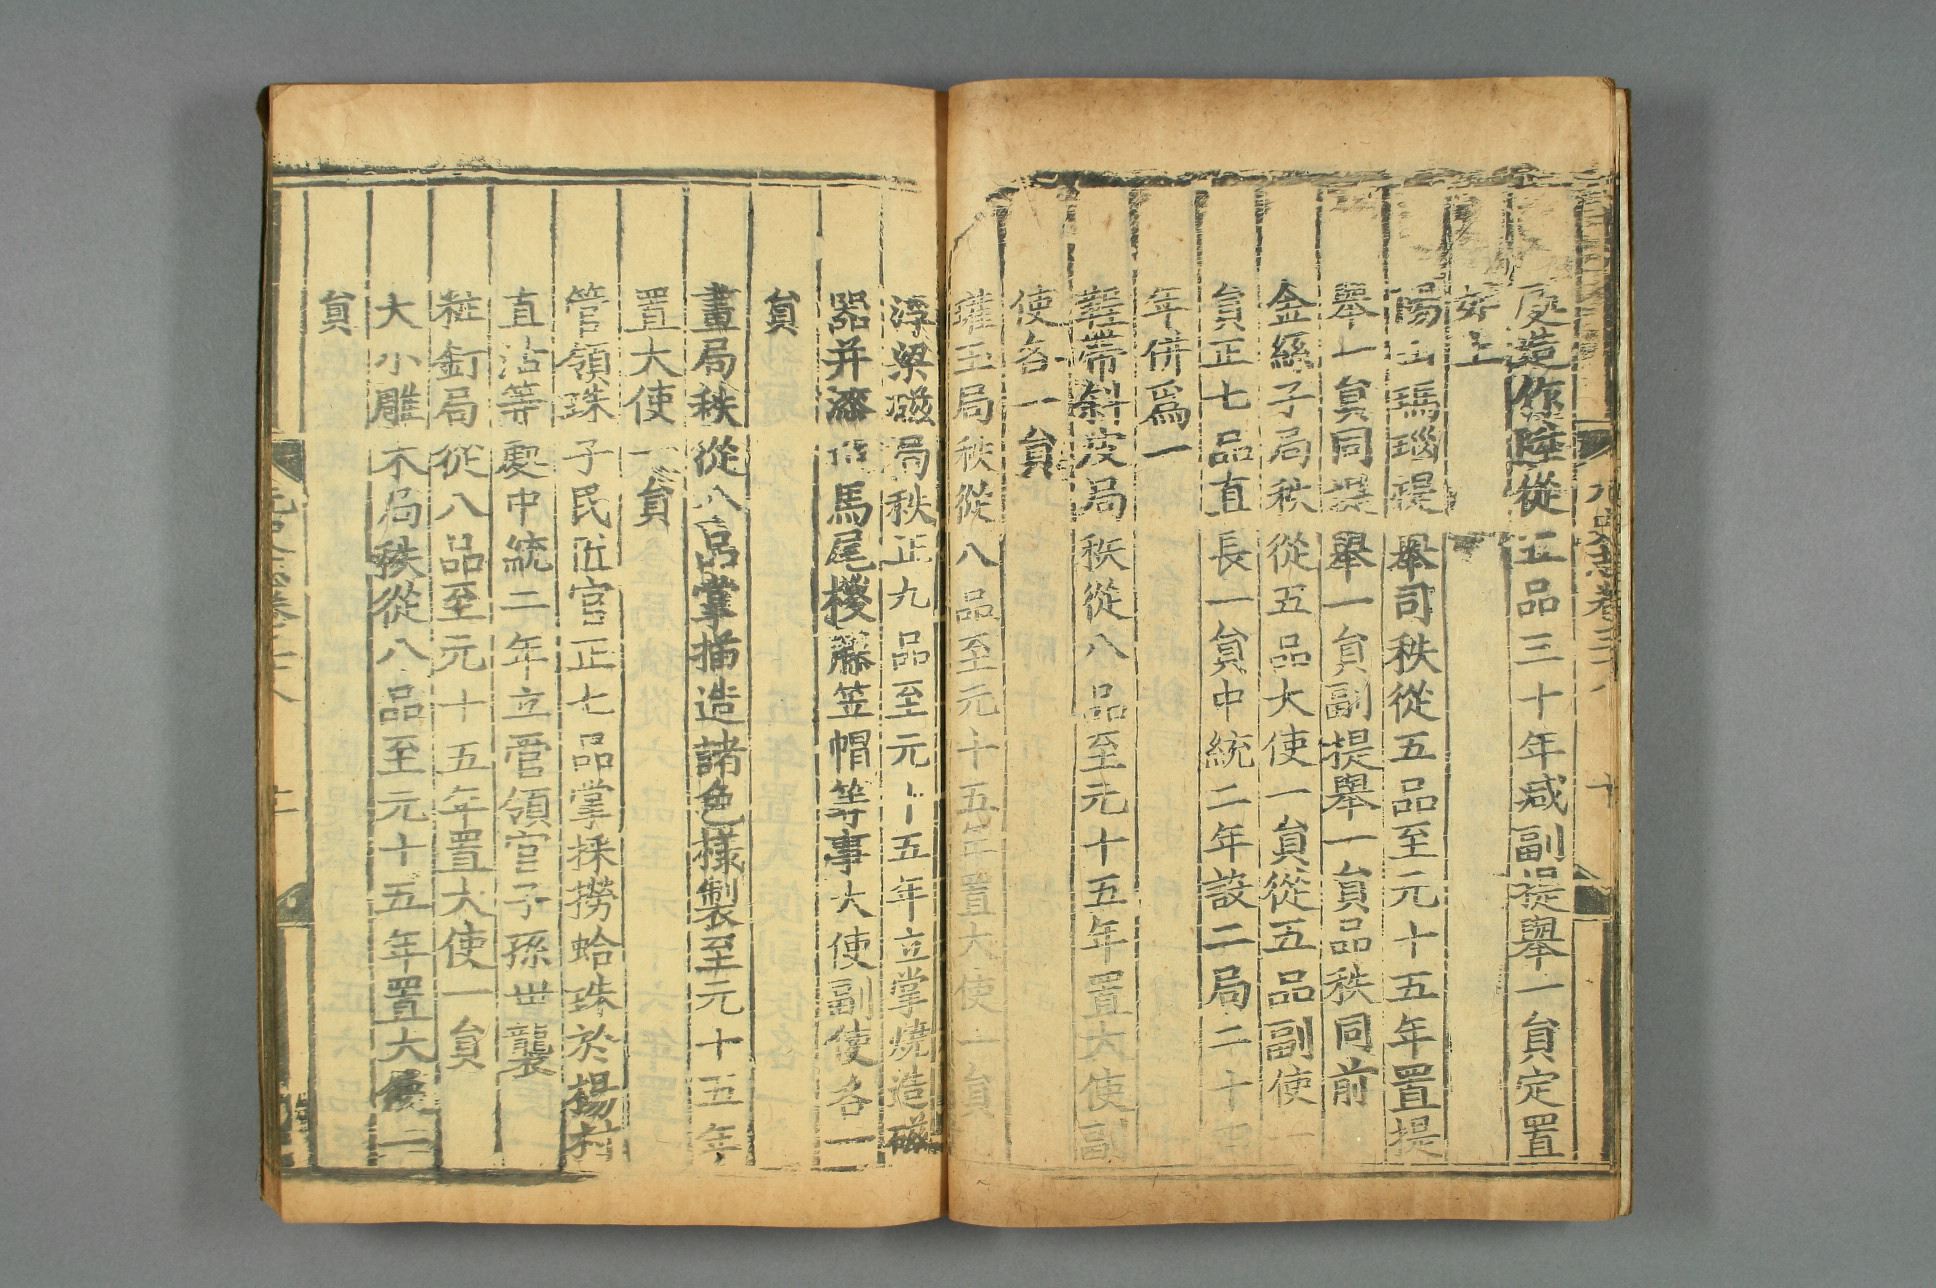 造你陸從五品三十年减副提舉一貟定置
如上
陽山瑪瑙提舉司秩從五品至元十五年置提
舉一貟同提舉一貟副提舉一貟品秩同前
金絲子局秩從五品大使一貟從五品副使一
貟正七品直長一貟中統二年設二局二十四
年併爲一
鞓帶斜皮局秩從八品至元十五年置大使副
使各一貟
瓘玉局秩從八品至元十五年置大使一貟
浮梁磁局秩正九品至元十五年立掌燒造磁
器并漆造馬尾椶藤笠帽等事大使副使各一
貟
畫局秩從八品掌描造諸色樣製至元十五年
置大使一貟
管領珠子民匠官正七品掌採撈蛤珠於楊村
直沽等處中統二年立管領官子孫世襲
粧釘局從八品至元十五年置大使一貟
大小雕木局秩從八品至元十五年置大使一
貟